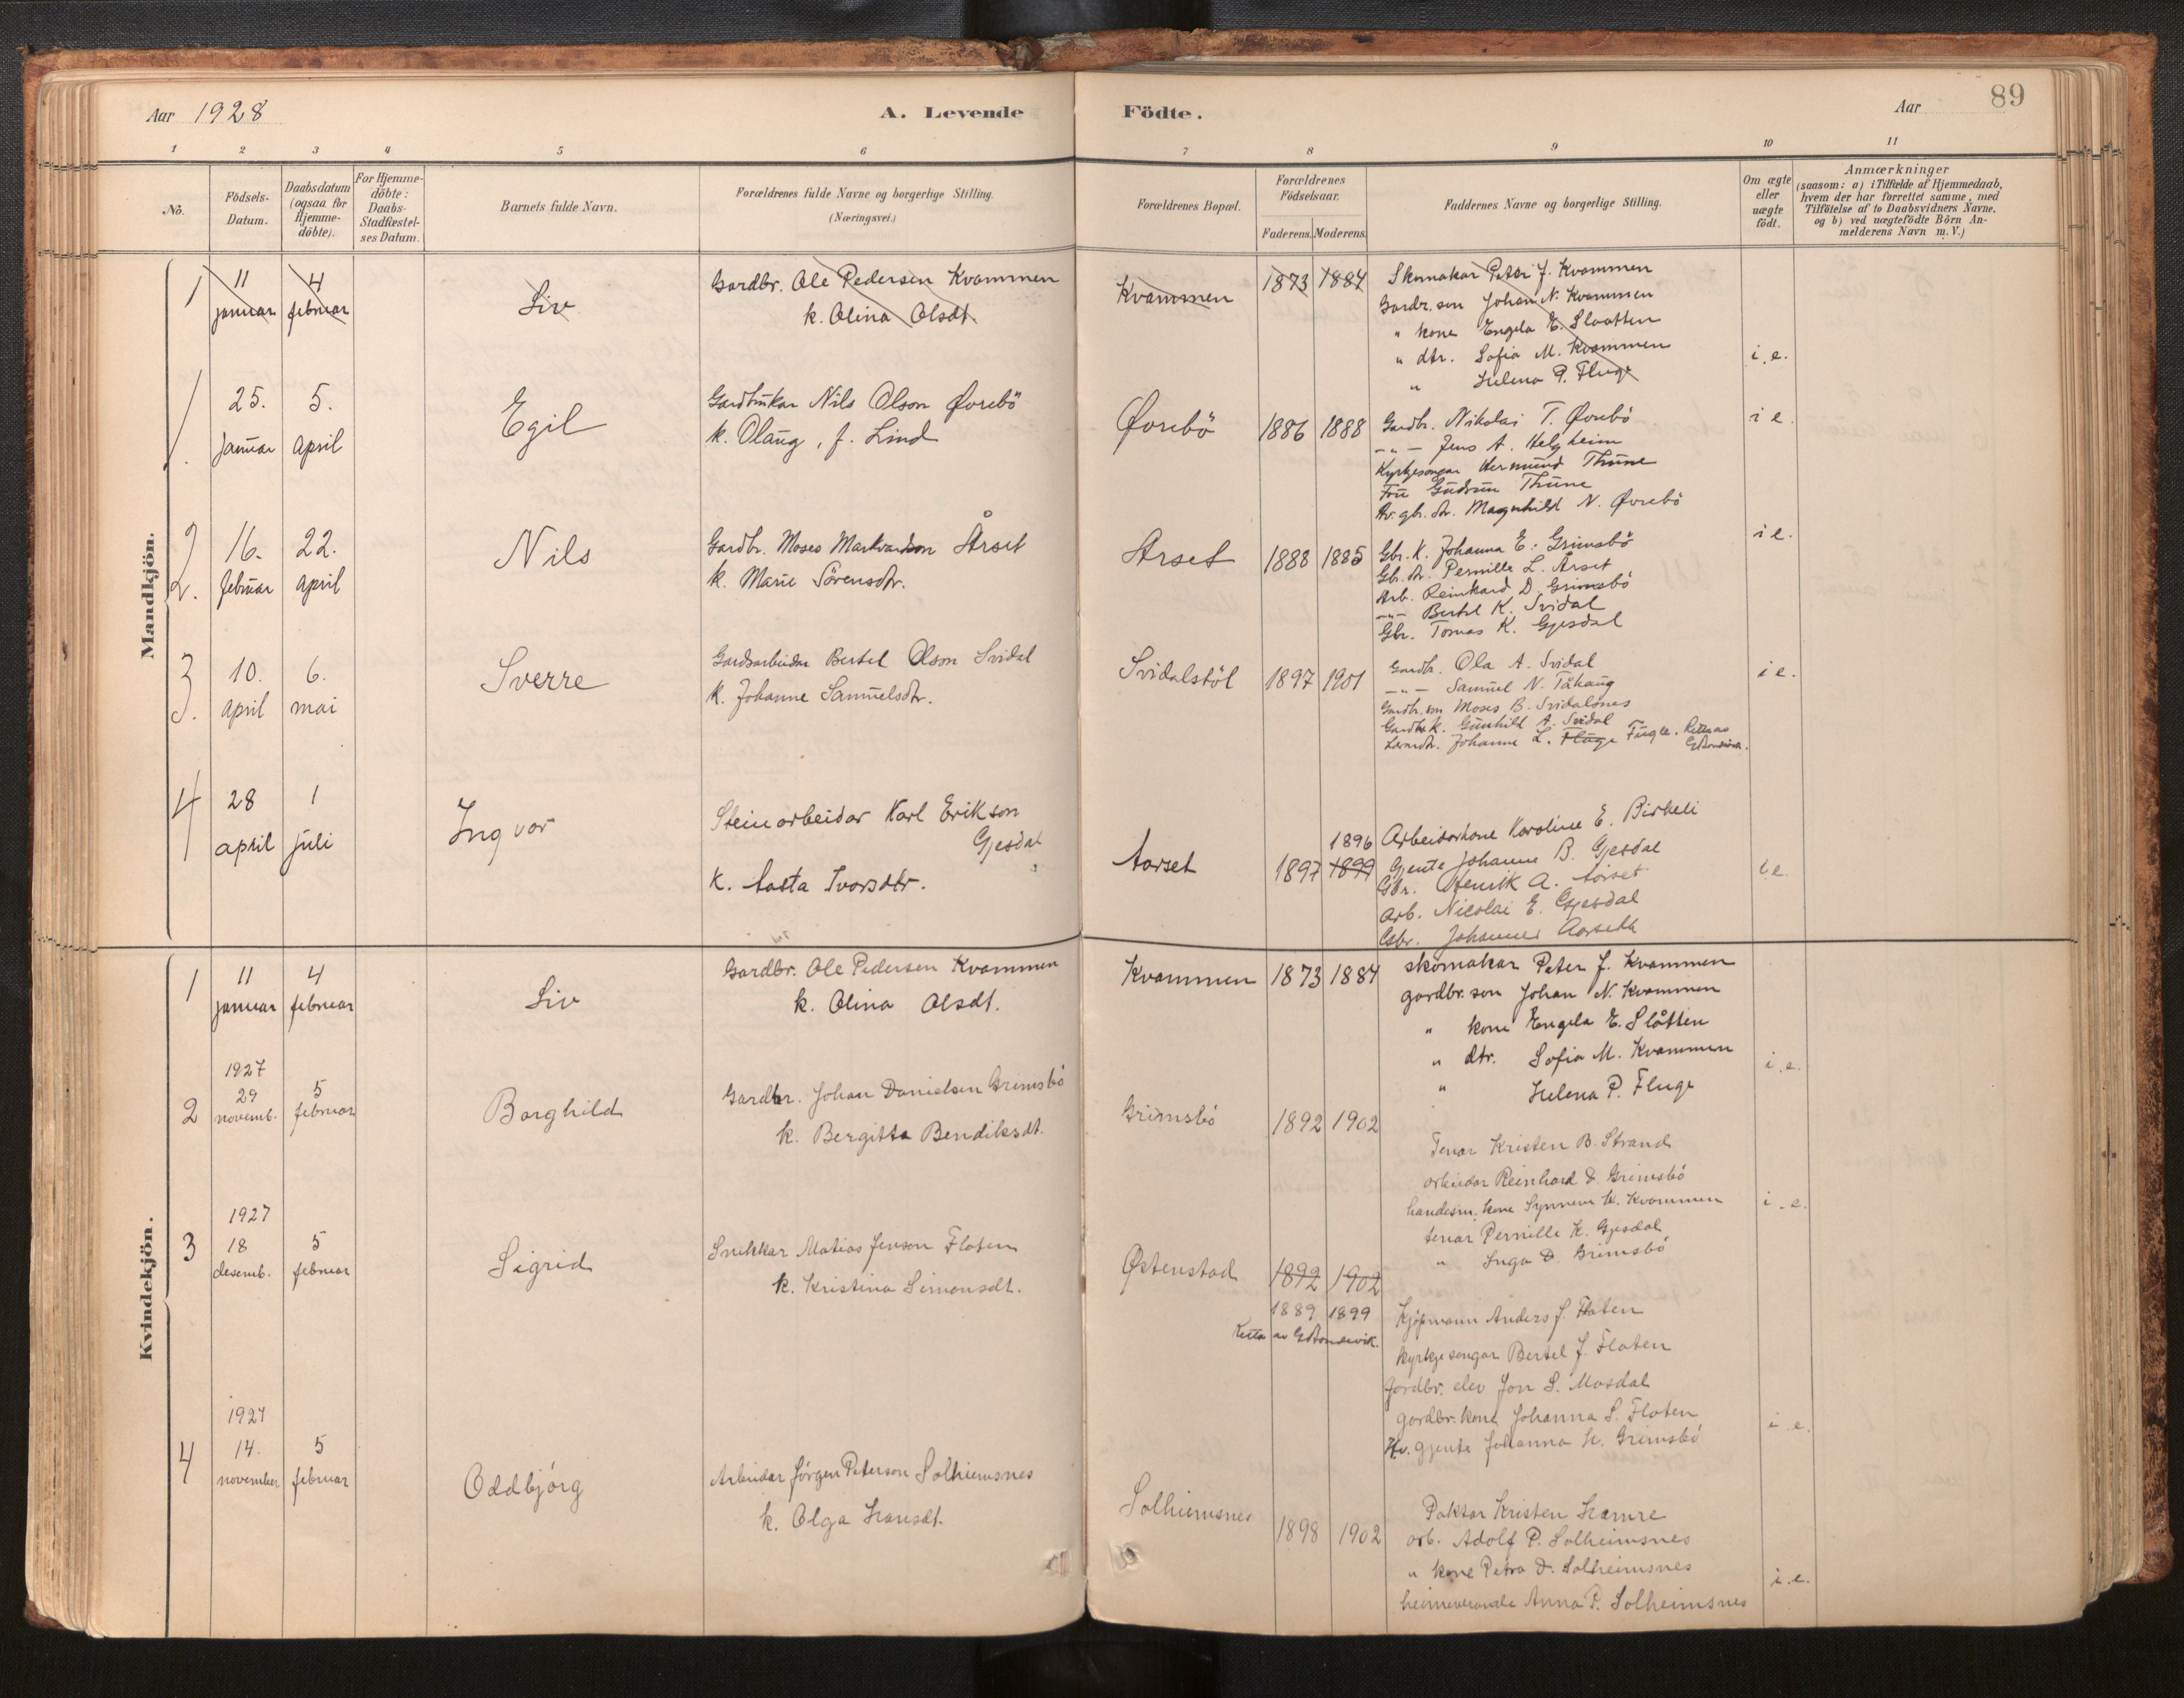 89
Aar 1928
A. Levende Födte.
Aar
1 2 3 4 5 6 7 8 9 10 11
No.
Födsels-
Datum.
Daabsdatum
(ogsaa for
Hjemme-
döbte).
For Hjemme-
döbte:
Daabs-
Stadfæstel-
ses Datum.
Barnets fulde Navn.
Forældrenes fulde Navne og borgerlige Stilling.
(Næringsvei.)
Forældrenes Bopæl.
Forældrenes
Födselsaar.
Faderens. Moderens.
Faddernes Navne og borgerlige Stilling.
Om ægte
eller
uægte
födt.
Anmærkninger
(saasom: a) i Tilfælde af Hjemmedaab,
hvem der har forrettet samme, med
Tilföielse af to Daabsvidners Navne,
og b) ved uægtefödte Börn An-
melderens Navn m. V.)
Mandkjön.
1 11 januar 4 februar Liv
Gardbr. Ole Pedersen Kvammen
k. Olina Olsdt.
Kvammen 1873 1884
Skomakar Peter J. Kvammen
Gardr. son Johan N. Kvammen
" kone Engela E. Slaatten
" dtr. Sofia M. Kvammen
" Helena P. Fluge
i.e.
1. 25. januar 5. april Egil
Gardbrukar Nils Olson Øvrebö
k. Olaug, f. Lind
Øvrebö 1886 1888
Gardbr. Nikolai T. Øvrebö
-"- Jens A. Helgheim
Kyrkjesongar Hermund Thune
Fru Gudrun Thune
gbr. dr. Magnhild N. Øvrebö
i e.
2. 16. februar 22. april Nils
Gardbr. Moses Markvardson Årset
k. Marie Sörensdtr.
Årset 1888 1885
Gbr. K. Johanna E. Grimsbö
Gbr. dr. Pernille L. Årset
Arb. Reinhard D. Grimsbö
-"- Bertel K. Svidal
Gbr. Tomas K. Gjesdal
i e.
3. 10. april 6. mai Sverre
Gardsarbeidar Bertel Olson Svidal
k. Johanne Samuelsdtr.
Svidalstöl 1897 1901
Gardbr. Ola A. Svidal
-"- Samuel N. Tähaug
Gardbr. son Moses B. Svidalsnes
Gardbr. K. Gunhild A. Svidal
Johanne L. Fluge Fugle.
i e.
4 28 april 1 juli Ingvar
Steinarbeidar Karl Erikson
Gjesdal
k. Aasta Ivarsdtr.
Aarset 1897 1899 1896
Arbeidarkone Karoline E. Birkeli
Gjente Johanne B. Gjesdal
Gbr. Henrik A. Aarset
Arb. Nicolai E. Gjesdal
Gbr. Johannes Aarseth
i e.
Kvindekjön.
1 11 januar 4 februar Liv
Gardbr. Ole Pedersen Kvammen
k. Olina Olsdt.
Kvammen 1873 1884
skomakar Peter J. Kvammen
gardbr. son Johan N. Kvammen
" kone Engela E. Slåtten
" dtr. Sofia M. Kvammen
" Helena P. Fluge
i.e.
2 1927 29 novemb. 5 februar Borghild
Gardbr. Johan Danielsen Grimsbö
k. Bergitta Bendiksdt.
Grimsbö 1892 1902
Tenar Kristen B. Strand
arbeidar Reinhard D. Grimsbö
handesm. kone Synneva K. Kvammen
tenar Pernille K. Gjesdal
" Inga D. Grimsbö
i.e.
3 1927 18 desemb. 5 februar Sigrid
Snikkar Matias Jenson Floten
k. Kristina Simonsdt.
Østenstad 1892 1902
1889 1899
Kjöpmann Anders J. Floten
kyrkjesongar Bertel J. Floten
jordbr. elev Jon S. Mosdal
gardbr. kone Johanna S. Floten
gjente Johanna H. Grimsbö
i e.
4 1927 14. november 5 februar Oddbjörg
Arbeidar Jörgen Peterson Solheimsnes
k. Olga Hansdt.
Solheimsnes 1898 1902
Doktor Kristen Hamre
arb. Adolf P. Solheimsnes
" kone Petra D. Solheimsnes
heimeverande Anna P. Solheimsnes
i.e.